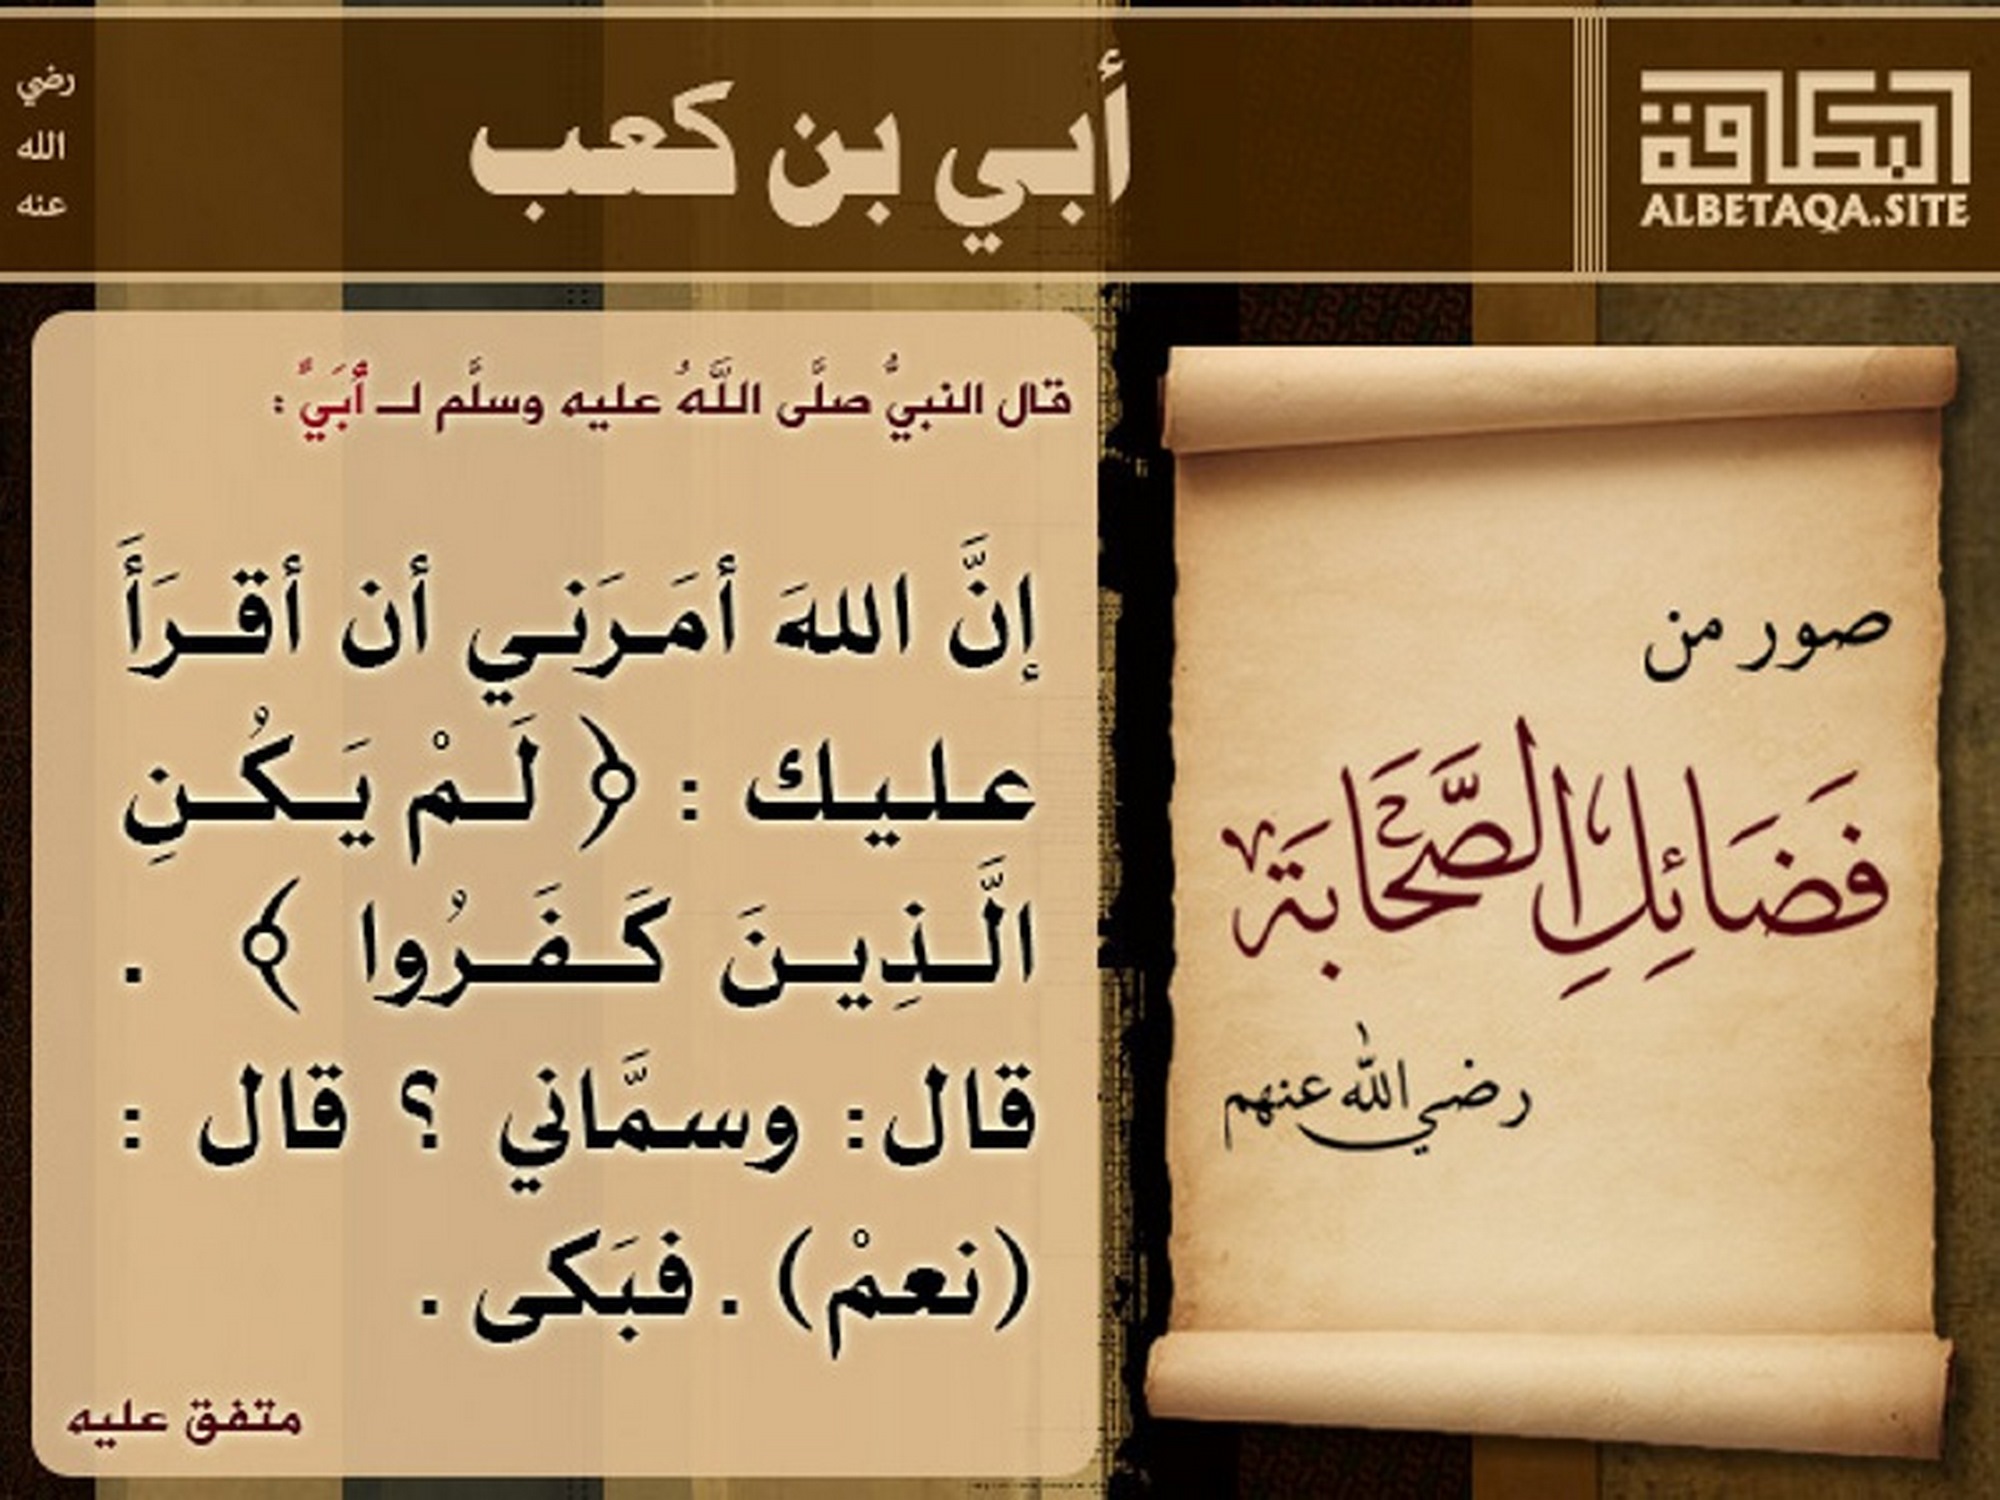 البطاقة
ALBETAQA.SITE
أبي بن كعب
رضي
الله
عنه
صور من
فَضَائِلِ الصَّحَابَة
رضي الله عنهم
قال النبيُّ صلَّى اللَّهُ عليه وسلَّم لـ أُبَيٍّ :
إنَّ اللهَ أمَرَني أن أقرَأَ
عليك : ﴿ لَمْ يَكُنِ
الَّذِينَ كَفَرُوا ﴾ .
قال: وسمَّاني ؟ قال :
(نعمْ) . فبَكى .
متفق عليه